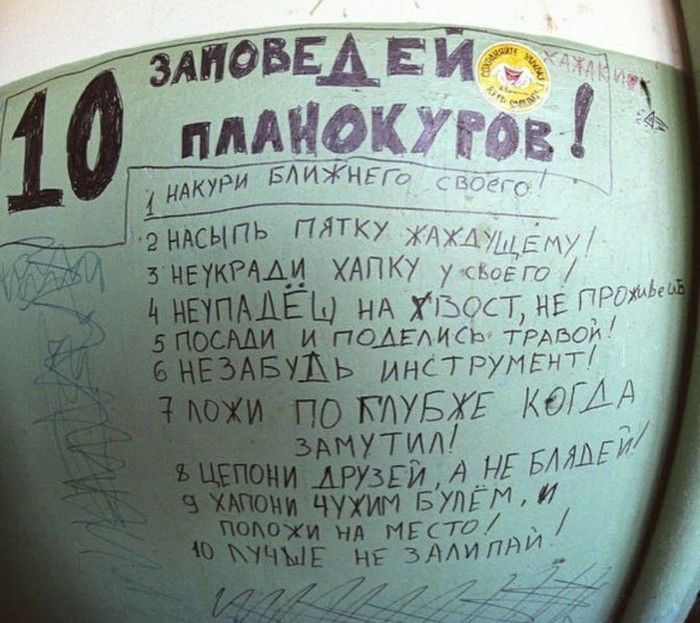 10 ЗАПОВЕДЕЙ
ПЛАНОКУРОВ!
СОХРАНЯЙТЕ УЛЫБКУ
KEEP SMILING
ХАЖАКИ
1 НАКУРИ БЛИЖНЕГО СВОЕГО!
2 НАСЫПЬ ПЯТКУ ЖАЖДУЩЕМУ!
3 НЕУКРАДИ ХАПКУ У СВОЕГО!
4 НЕУПАДЁШ НА ХВОСТ, НЕ ПРОЖИВЕШЬ
5 ПОСАДИ И ПОДЕЛИСЬ ТРАВОЙ!
6 НЕЗАБУДЬ ИНСТРУМЕНТ!
7 ЛОЖИ ПО ГЛУБЖЕ КОГДА
ЗАМУТИЛ!
8 ЦЕПОНИ ДРУЗЕЙ, А НЕ БЛЯДЕЙ!
9 ХАПОНИ ЧУЖИМ БУЛЁМ, И
ПОЛОЖИ НА МЕСТО!
10 ЛУЧЬШЕ НЕ ЗАЛИПАЙ!